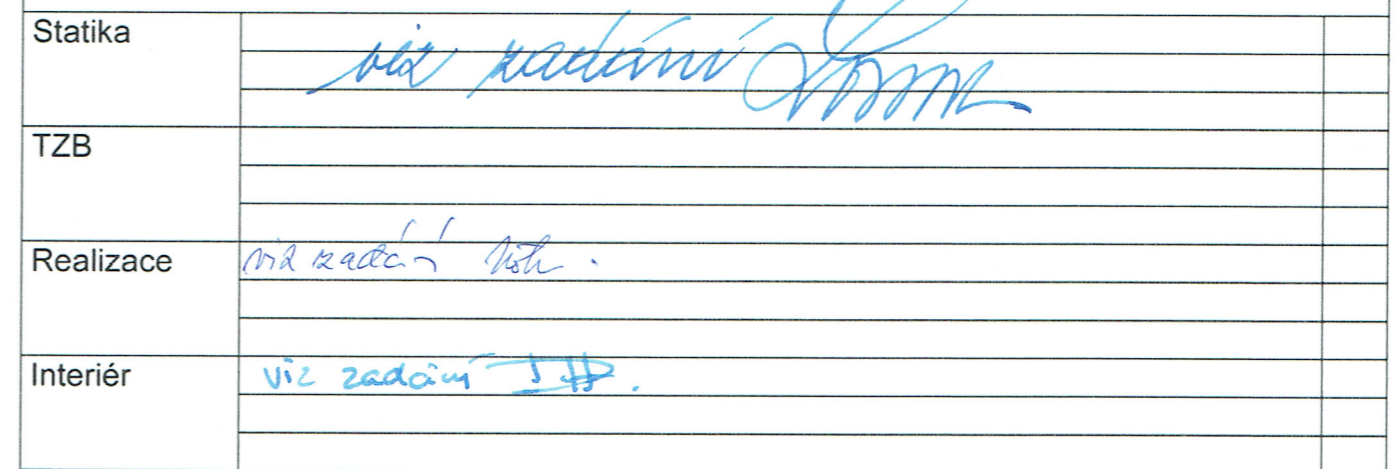 Statika
viz zadání
TZB
Realizace
viz zadání
Interiér
viz zadání